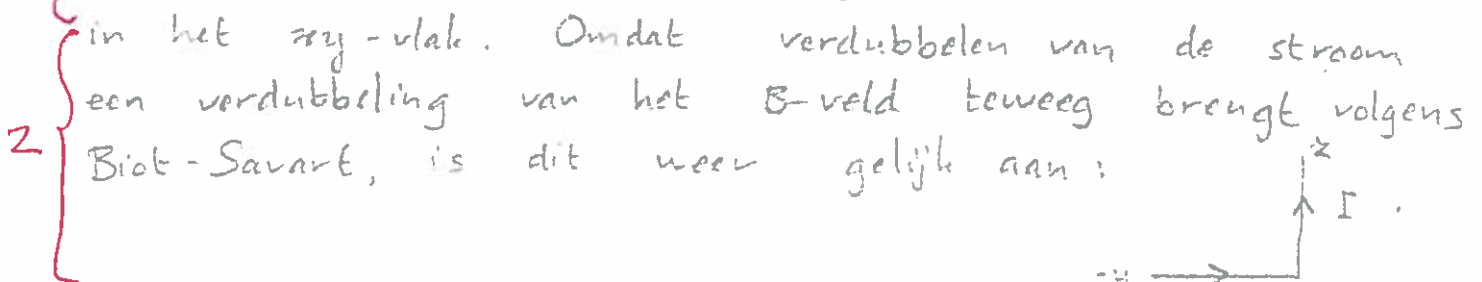 in het xy-vlak. Omdat verdubbelen van de stroom
een verdubbeling van het B-veld teweeg brengt volgens
2
Biot-Savart, is dit weer gelijk aan:
z
I .